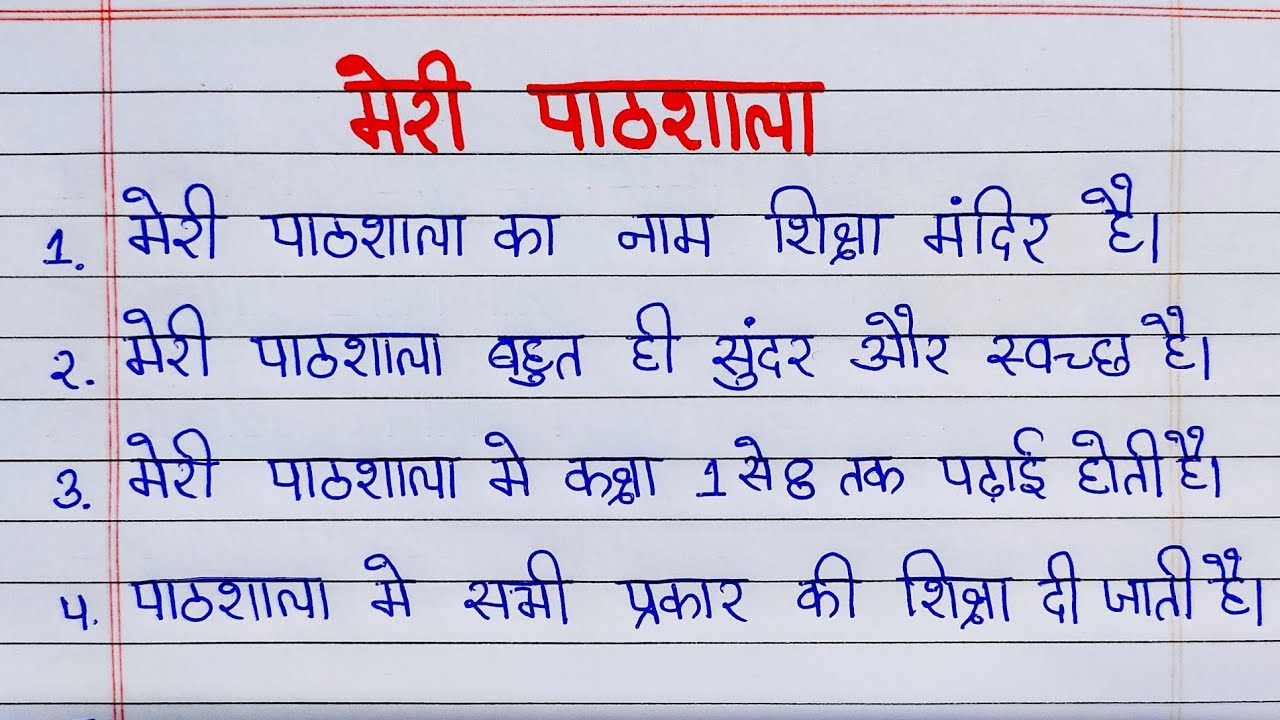 मेरी पाठशाला
1. मेरी पाठशाला का नाम शिक्षा मंदिर है।
२. मेरी पाठशाला बहुत ही सुंदर और स्वच्छ है।
3. मेरी पाठशाला मे कक्षा 1 से 8 तक पढ़ाई होती है।
4. पाठशाला मे सभी प्रकार की शिक्षा दी जाती है।